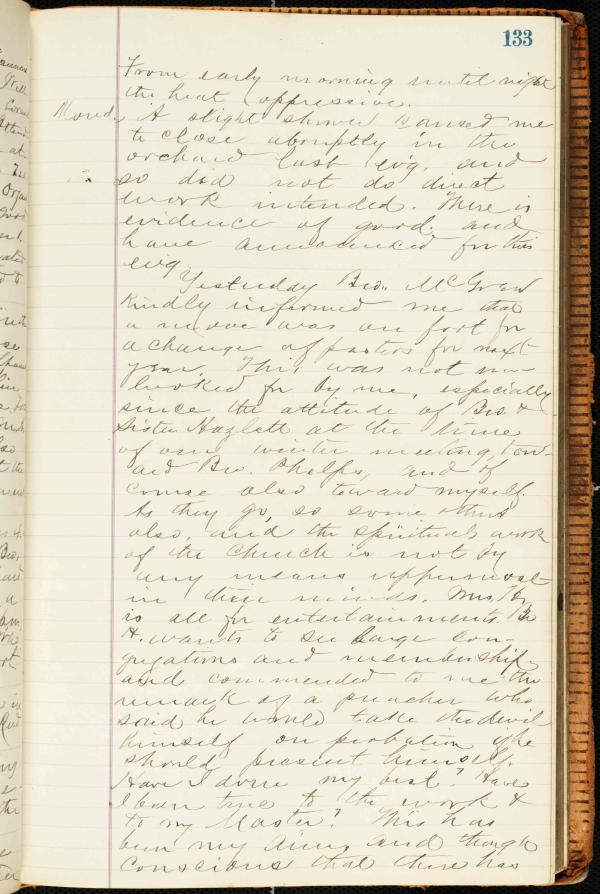 133
From early morning until night
the heat oppressive.
Mond. A slight shower caused me
to close abruptly in the
orchard last ev'g. and
so did not do direct
work intended. There is
evidence of good. and
have announced for this
ev'g
Yesterday Bro. McGrew
kindly informed me that
a move was on foot for
a change of pastors for next
year. This was not un-
looked for by me, especially
since the attitude of Bro. &
Sister Hazlett at the time
of our winter meeting, tow-
ard Bro. Phelps, and of
course also toward myself.
As they go, so some others
also, and the spiritual work
of the Church is not by
any means uppermost
in their minds. Mrs. H.
is all for entertainments. Bro
H. wants to see large con-
gregations and membership
and commended to me the
remark of a preacher who
said he would take the devil
himself on probation if he
should present himself.
Have I done my best? Have
I been true to the work &
to my Master? This has
been my aim, and though
conscious that there has